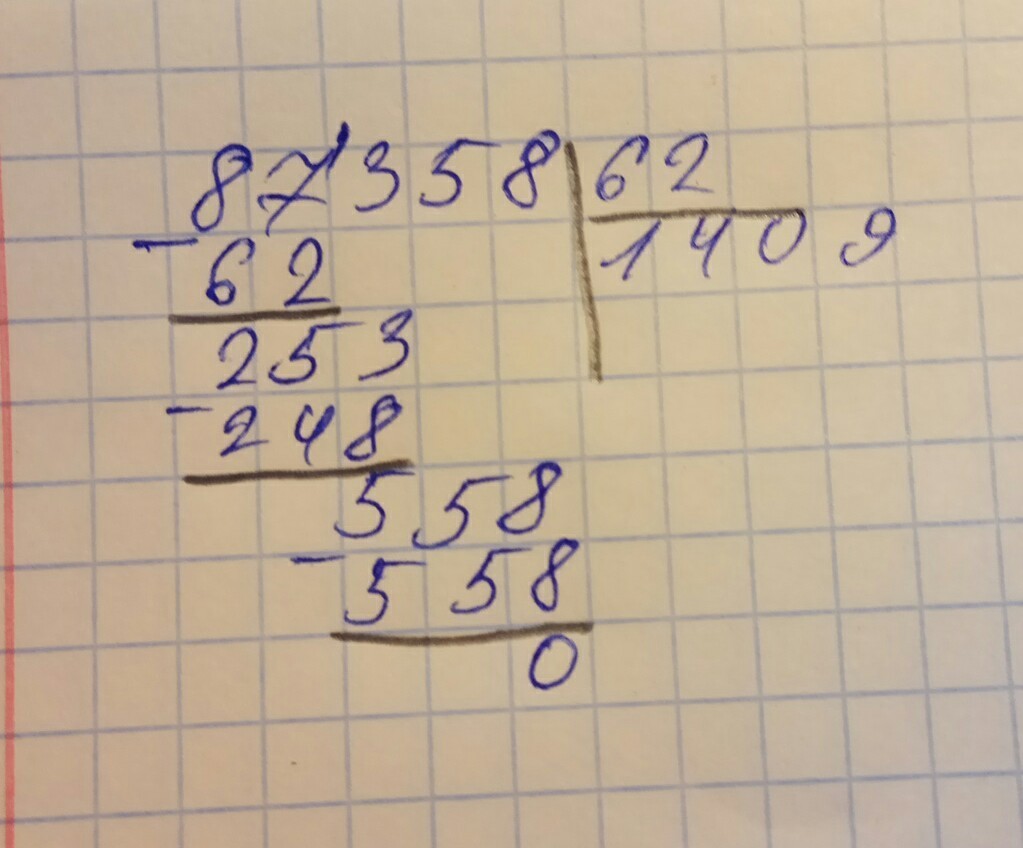 87'358 62
- 62 1409
253
- 248
558
- 558
0